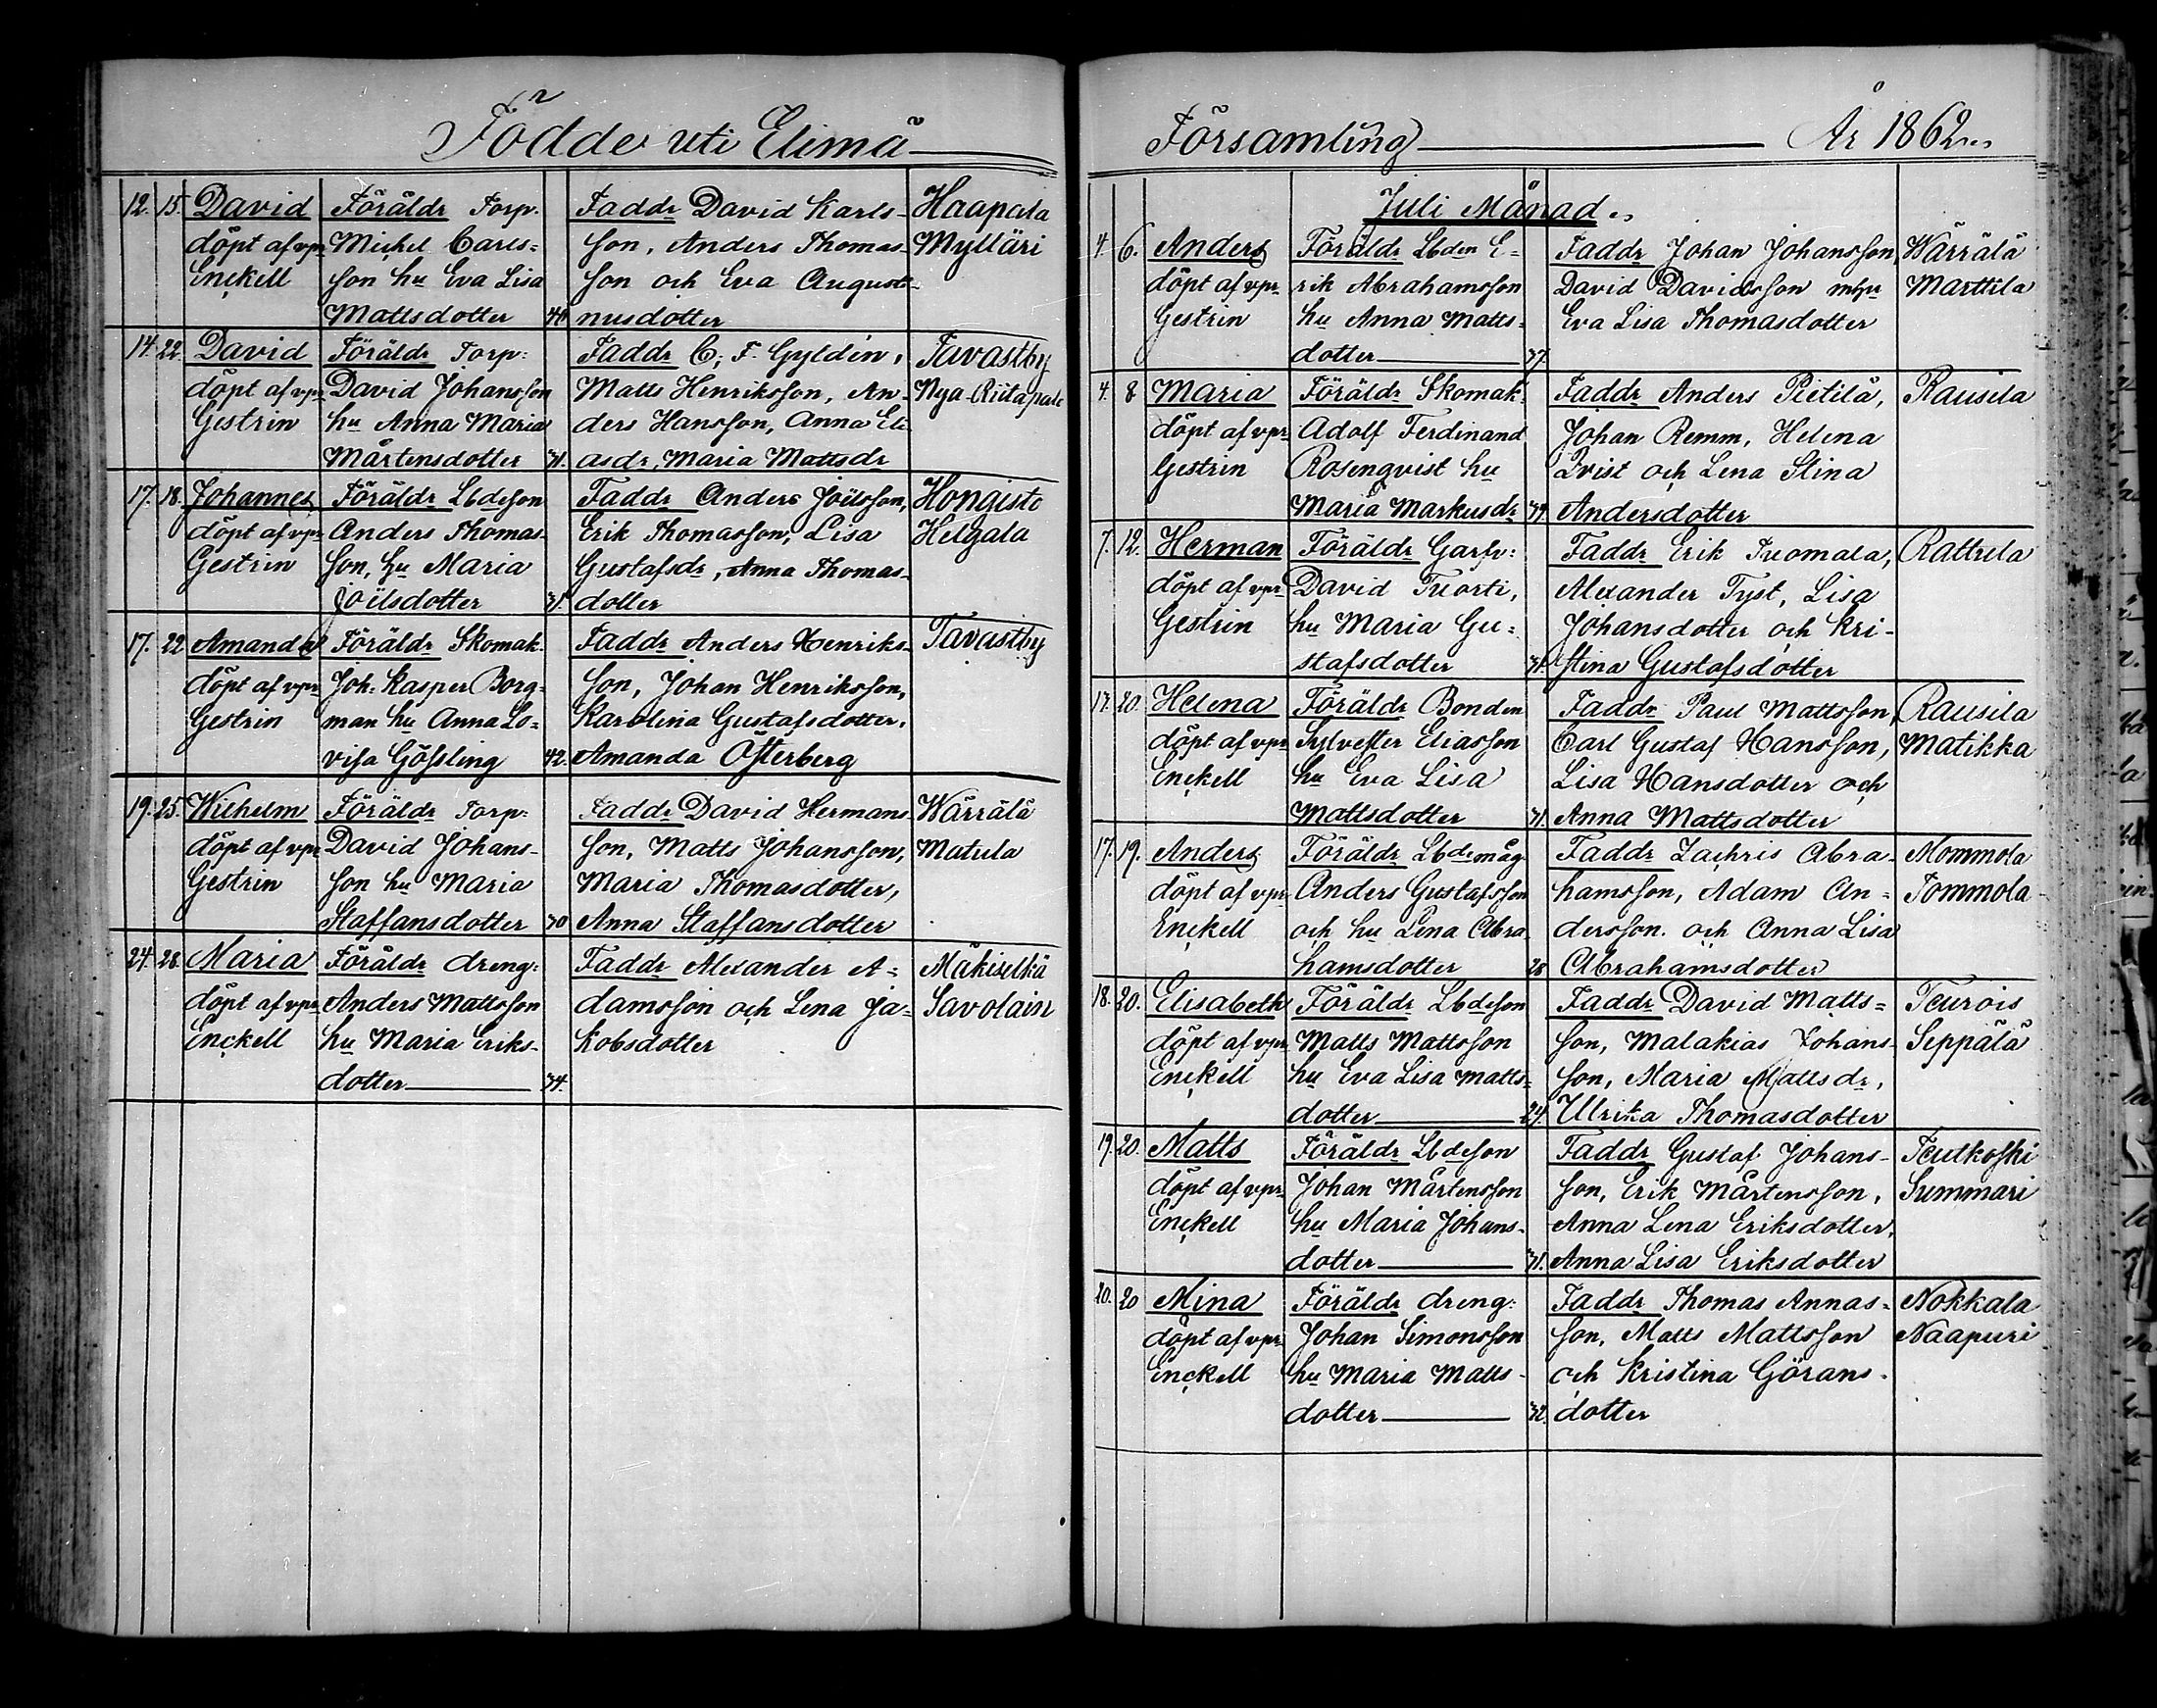 Födde uti Elimä
12. 15. David Föräldr Torp. Faddr David Karls- Haapala
döpt af vpr Michel Carls= son, Anders Thomas- Mylläri
Enckell son hu Eva Lisa son och Eva Augusti-
Mattsdotter 44 nusdotter
14. 22. David Föräldr Torp: Faddr C. F. Gyldén, Tavastby
döpt af vpr David Johansson Matts Henriksson, An- Nya-Riitapale
Gestrin hu Anna Maria ders Hansson, Anna Eli
Mårtensdotter 31. asdr, Maria Mattsdr
17. 18. Johannes Föräldr Lbdeson Faddr Anders Joilsson, Hongisto
döpt af vpr Anders Thomas- Erik Thomasson, Lisa Helgala
Gestrin son, hu Maria Gustafsdr, Anna Thomas-
Joilsdotter 31. dotter
17. 22 Amanda Föräldr Skomak. Faddr Anders Henriks- Tavastby
döpt af vpr Joh: Kasper Borg- son, Johan Henriksson,
Gestrin man hu Anna Lo- Karolina Gustafsdotter,
visa Gössling 42. Amanda Österberg
19. 25. Wilhelm Föräldr Torp: Faddr David Hermans Wärrälä
döpt af vpr David Johans- son, Matts Johansson, Matula
Gestrin son hu Maria Maria Thomasdotter,
Staffansdotter 30 Anna Staffansdotter
24. 28. Maria Föräldr dreng: Faddr Alexander A- Mäkiselkä
döpt af vpr Anders Mattsson damsson och Lena Ja- Savolain
Enckell hu Maria Eriks- kobsdotter
dotter 34.
Församling År 1862
Juli Månad
4. 6. Anders Föräldr Lbden E- Faddr Johan Johansson, Wärrälä
döpt af vpr rik Abrahamsson David Davidsson mhu Marttila
Gestrin hu Anna Matts- Eva Lisa Thomasdotter
dotter 37.
4. 8 Maria Föräldr Skomak. Faddr Anders Pietilä, Rausila
döpt af vpr Adolf Ferdinand Johan Remm, Helena
Gestrin Rosenqvist hu Qvist och Lena Stina
Maria Markusdr 39. Andersdotter
7. 12. Herman Föräldr Garfv: Faddr Erik Tuomala, Rattula
döpt af vpr David Tuorti, Alexander Tyst, Lisa
Gestrin hu Maria Gu- Johansdotter och Kri-
stafsdotter 31. stina Gustafsdotter
17. 20. Helena Föräldr Bonden Faddr Paul Mattsson, Rausila
döpt af vpr Sylvester Eliasson Carl Gustaf Hansson, Matikka
Enckell hu Eva Lisa Lisa Hansdotter och
Mattsdotter 31. Anna Mattsdotter
17. 19. Anders Föräldr Lbdemåg Faddr Zachris Abra- Mommola
döpt af vpr Anders Gustafsson hamsson, Adam An- Tommola
Enckell och hu Lena Abra- dersson och Anna Lisa
hamsdotter 28 Abrahamsdotter
18. 20. Elisabeth Föräldr Lbdeson Faddr David Matts- Teurois
döpt af vpr Matts Mattsson son, Malakias Johans- Seppälä
Enckell hu Eva Lisa Matts- son, Maria Mattsdr,
dotter 24. Ulrika Thomasdotter
19. 20. Matts Föräldr Lbdeson Faddr Gustaf Johans- Teutkoski
döpt af vpr Johan Mårtensson son, Erik Mårtensson, Summari
Enckell hu Maria Johans- Anna Lena Eriksdotter,
dotter 31. Anna Lisa Eriksdotter
20. 20 Mina Föräldr dreng: Faddr Thomas Annas- Nokkala
döpt af vpr Johan Simonsson son, Matts Mattsson Naapuri
Enckell hu Maria Matts- och Kristina Görans-
dotter 32. dotter